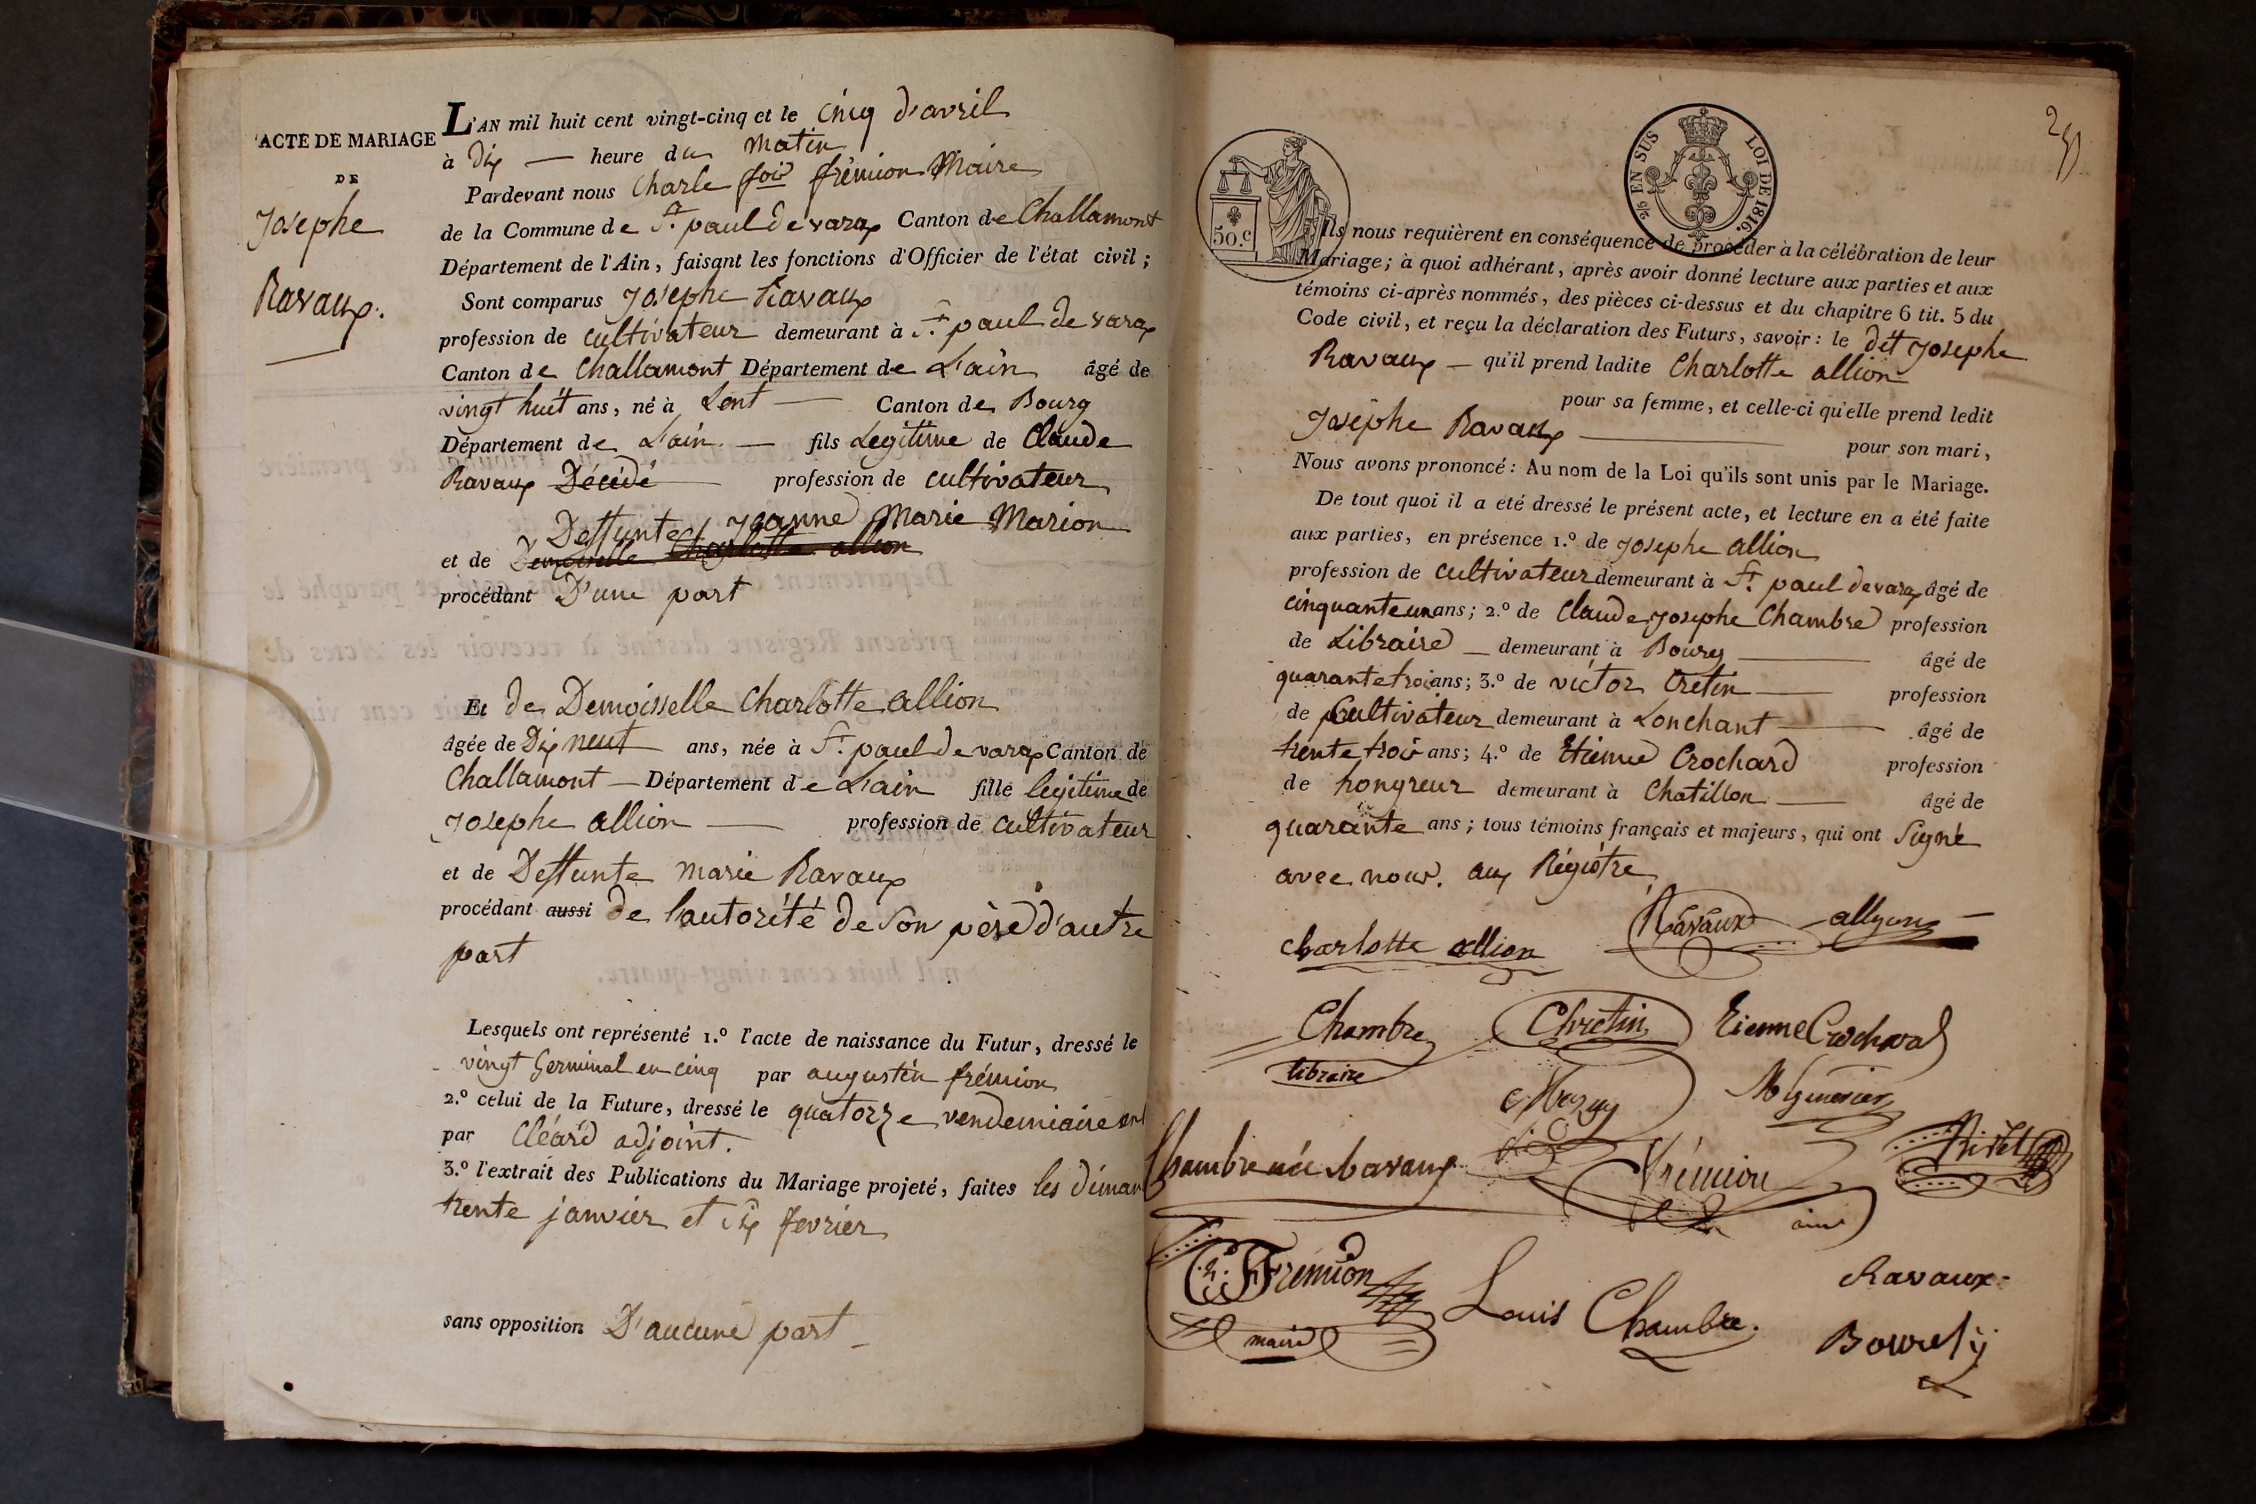 ACTE DE MARIAGE
DE
Josephe
Ravaux.
L'AN mil huit cent vingt-cinq et le cinq d'avril
à dix — heure du matin
Pardevant nous Charle fois frémion Maire
de la Commune de St. paul de varax Canton de Challamont
Département de l'Ain, faisant les fonctions d'Officier de l'état civil;
Sont comparus Josephe Ravaux
profession de cultivateur demeurant à St. paul de varax
Canton de Challamont Département de L'ain âgé de
vingt huit ans, né à Lent — Canton de Bourg
Département de L'ain — fils Legitime de Claude
Ravaux Décédé — profession de cultivateur
Deffunte Jeanne Marie Marion
et de Demoiselle Charlotte allion
procédant D'une part
Et de Demoisselle Charlotte allion
âgée de Dix neuf ans, née à St. paul de varax Canton de
Challamont — Département de L'ain fille legitime de
Josephe allion — profession de cultivateur
et de Deffunte marie Ravaux
procédant aussi de l'autorité de son père d'autre
part
Lesquels ont représenté 1.º l'acte de naissance du Futur, dressé le
vingt Germinal en cinq par augustin frémion
2.º celui de la Future, dressé le quatorze vendemiaire
par Cléard adjoint.
3.º l'extrait des Publications du Mariage projeté, faites les diman
trente janvier et six fevrier
sans opposition D'aucune part
2/5 EN SUS LOI DE 1816.
50.c
Ils nous requièrent en conséquence de procéder à la célébration de leur
Mariage; à quoi adhérant, après avoir donné lecture aux parties et aux
témoins ci-après nommés, des pièces ci-dessus et du chapitre 6 tit. 5 du
Code civil, et reçu la déclaration des Futurs, savoir: le dit Josephe
Ravaux — qu'il prend ladite Charlotte allion
pour sa femme, et celle-ci qu'elle prend ledit
Josephe Ravaux — pour son mari,
Nous avons prononcé: Au nom de la Loi qu'ils sont unis par le Mariage.
De tout quoi il a eté dressé le présent acte, et lecture en a été faite
aux parties, en présence 1.º de Josephe allion
profession de cultivateur demeurant à St. paul de varax âgé de
cinquante un ans; 2.º de Claude Josephe Chambre profession
de Libraire — demeurant à Bourg — âgé de
quarante trois ans; 3.º de victor Cretin — profession
de Cultivateur demeurant à Lonchant — âgé de
trente trois ans; 4.º de Etienne Crochard profession
de hongreur demeurant à Chatillon — âgé de
quarante ans; tous témoins français et majeurs, qui ont Signé
avec nous. aux Régistre
charlotte allion Ravaux allyon
Chambre Chretin Etienne Crochard
libraire
Chambre née Ravaux Frémion
ainé
Frémion Louis Chambre. Ravaux
maire